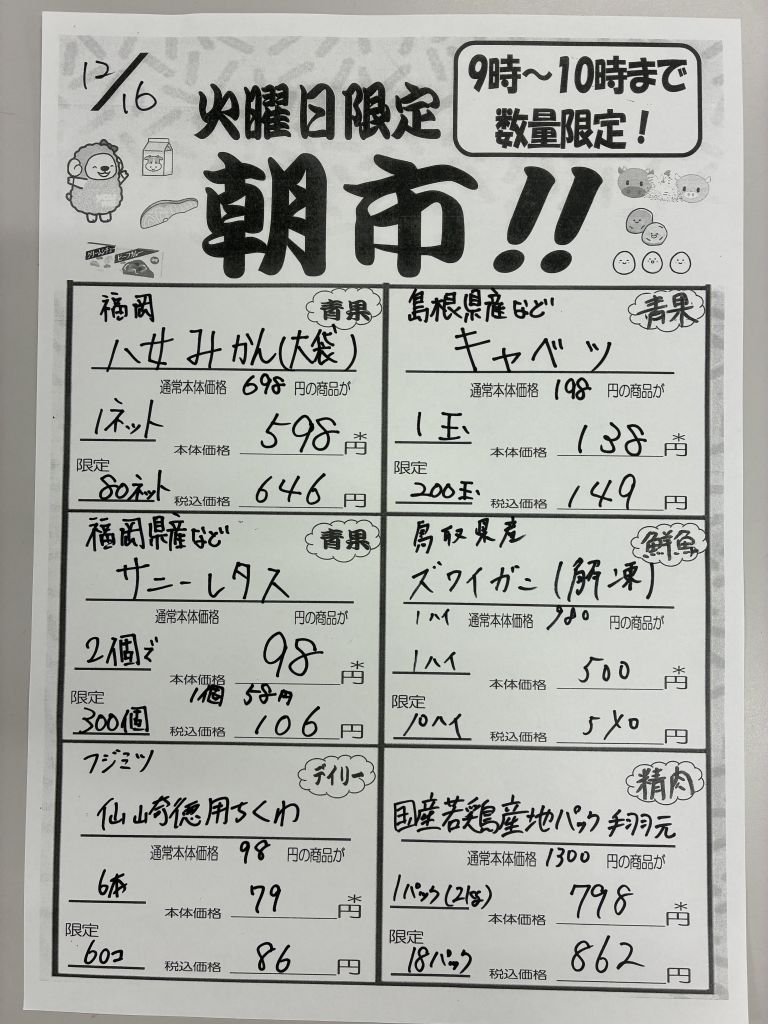 12/16
火曜日限定
9時～10時まで
数量限定！
朝市!!
クリームシチュー
ビーフカレー
福岡
青果
八女みかん(大袋)
通常本体価格 698 円の商品が
1ネット
本体価格 598 円*
限定
80ネット
税込価格 646 円
島根県産など
青果
キャベツ
通常本体価格 198 円の商品が
1玉
本体価格 138 円*
限定
200玉
税込価格 149 円
福岡県産など
青果
サニーレタス
通常本体価格 円の商品が
2個で
本体価格 98 円*
1個 58円
限定
300個
税込価格 106 円
鳥取県産
鮮魚
ズワイガニ(解凍)
1ハイ 通常本体価格 980 円の商品が
1ハイ
本体価格 500 円*
限定
10ハイ
税込価格 540 円
フジミツ
デイリー
仙崎徳用ちくわ
通常本体価格 98 円の商品が
6本
本体価格 79 円*
限定
60コ
税込価格 86 円
精肉
国産若鶏産地パック手羽元
通常本体価格 1300 円の商品が
1パック(2kg)
本体価格 798 円*
限定
18パック
税込価格 862 円